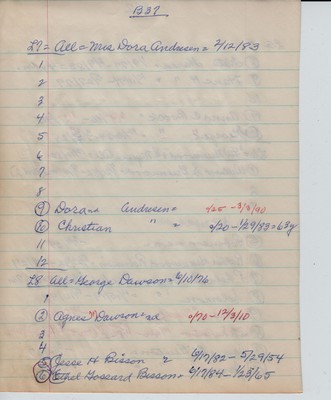 B37
L7 = All = Mrs Dora Andresen = 2/12/83
1
2
3
4
5
6
7
8
9 Dora Andresen = 2/25 - 3/3/90
10 Christian " = 2/20 - 1/29/83 = 63y
11
12
L8 All = George Dawson = 4/10/76
1
2 Agnes M Dawson = 2/70 - 12/3/10
3
4
5 Jesse H Bisson = 6/17/82 - 5/29/54
6 Ethel Gossard Bisson = 6/17/84 - 1/23/65